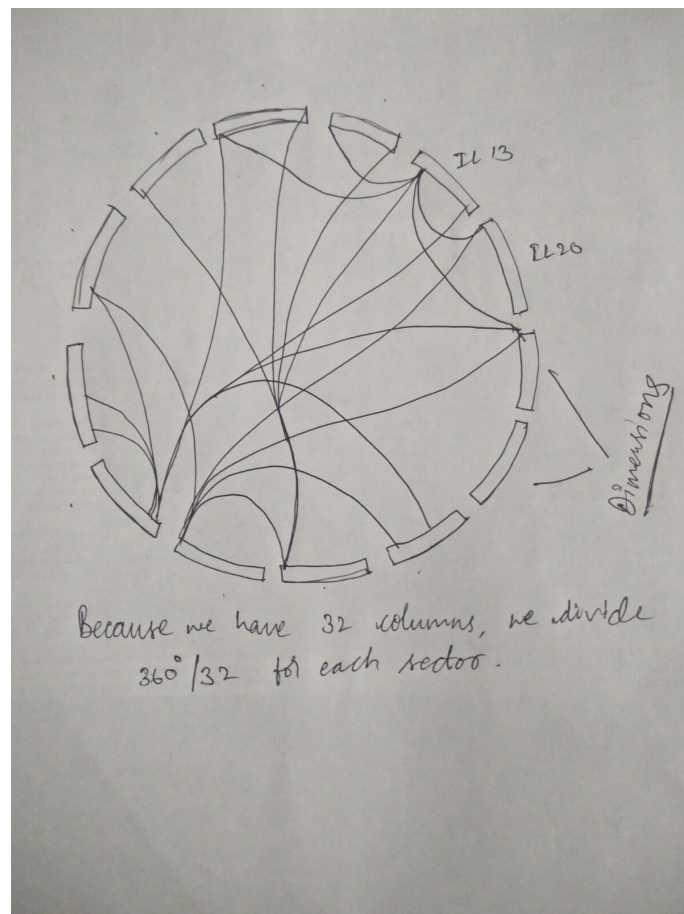 IL 13
IL20
Dimensions
Because we have 32 columns, we divide
360°/32 for each sector.